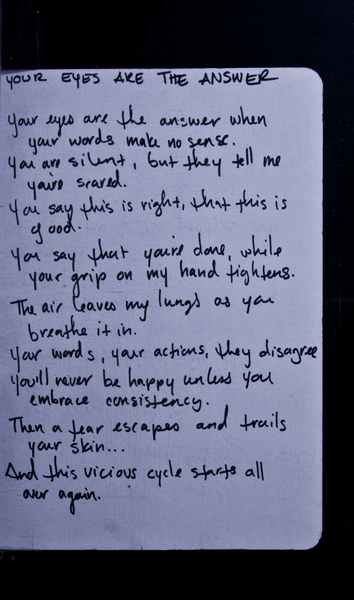 YOUR EYES ARE THE ANSWER
Your eyes are the answer when
your words make no sense.
You are silent, but they tell me
you're scared.
You say this is right, that this is
good.
You say that you're done, while
your grip on my hand tightens.
The air leaves my lungs as you
breathe it in.
Your words, your actions, they disagree
You'll never be happy unless you
embrace consistency.
Then a tear escapes and trails
your skin...
And this vicious cycle starts all
over again.